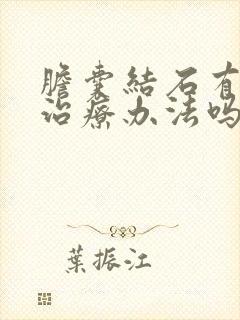 膽囊結石有
治療办法吗
葉振江